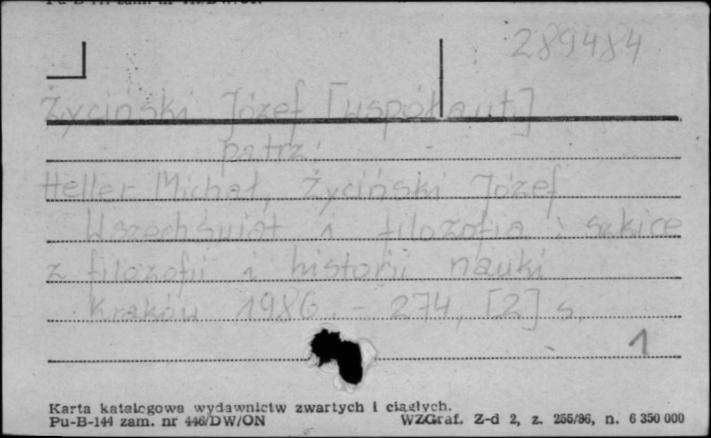 Pu-B-144 zam. nr 446/DW/ON
289484
Życiński Józef [współaut.]
patrz:
Heller Michał, Życiński Józef
Wszechświat i filozofia : szkice
z filozofii i historii nauki
Kraków 1986. - 274, [2] s.
1
Karta katalogowa wydawnictw zwartych i ciągłych.
Pu-B-144 zam. nr 446/DW/ON WZGraf. Z-d 2, z. 255/86, n. 6 350 000